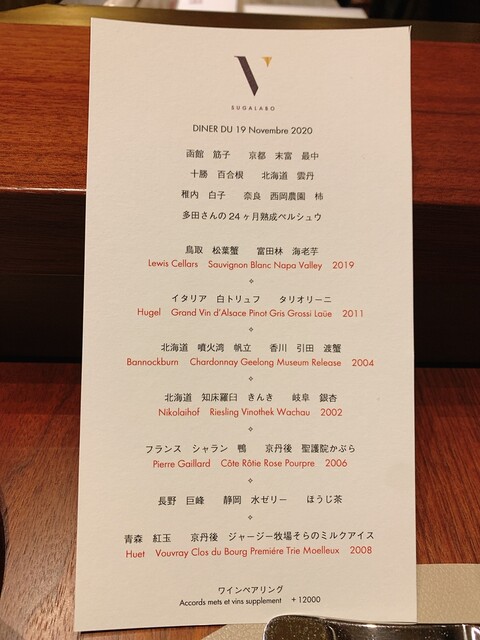 V
SUGALABO
DINER DU 19 Novembre 2020
函館 筋子 京都 末富 最中
十勝 百合根 北海道 雲丹
稚内 白子 奈良 西岡農園 柿
多田さんの24ヶ月熟成ペルシュウ
鳥取 松葉蟹 富田林 海老芋
Lewis Cellars Sauvignon Blanc Napa Valley 2019
イタリア 白トリュフ タリオリーニ
Hugel Grand Vin d'Alsace Pinot Gris Grossi Laüe 2011
北海道 噴火湾 帆立 香川 引田 渡蟹
Bannockburn Chardonnay Geelong Museum Release 2004
北海道 知床羅臼 きんき 岐阜 銀杏
Nikolaihof Riesling Vinothek Wachau 2002
フランス シャラン 鴨 京丹後 聖護院かぶら
Pierre Gaillard Côte Rôtie Rose Pourpre 2006
長野 巨峰 静岡 水ゼリー ほうじ茶
青森 紅玉 京丹後 ジャージー牧場そらのミルクアイス
Huet Vouvray Clos du Bourg Premiére Trie Moelleux 2008
ワインペアリング
Accords mets et vins supplement +12000